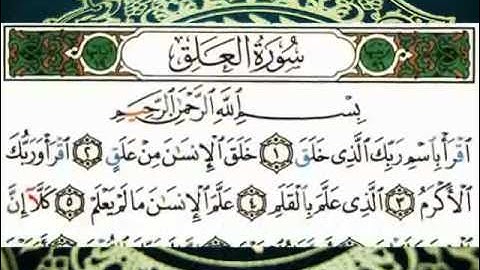 سُورَةُ الْعَلَقِ
بِسْمِ ٱللَّهِ ٱلرَّحْمَٰنِ ٱلرَّحِيمِ
ٱقْرَأْ بِٱسْمِ رَبِّكَ ٱلَّذِى خَلَقَ ١ خَلَقَ ٱلْإِنسَٰنَ مِنْ عَلَقٍ ٢ ٱقْرَأْ وَرَبُّكَ
ٱلْأَكْرَمُ ٣ ٱلَّذِى عَلَّمَ بِٱلْقَلَمِ ٤ عَلَّمَ ٱلْإِنسَٰنَ مَا لَمْ يَعْلَمْ ٥ كَلَّآ إِنَّ